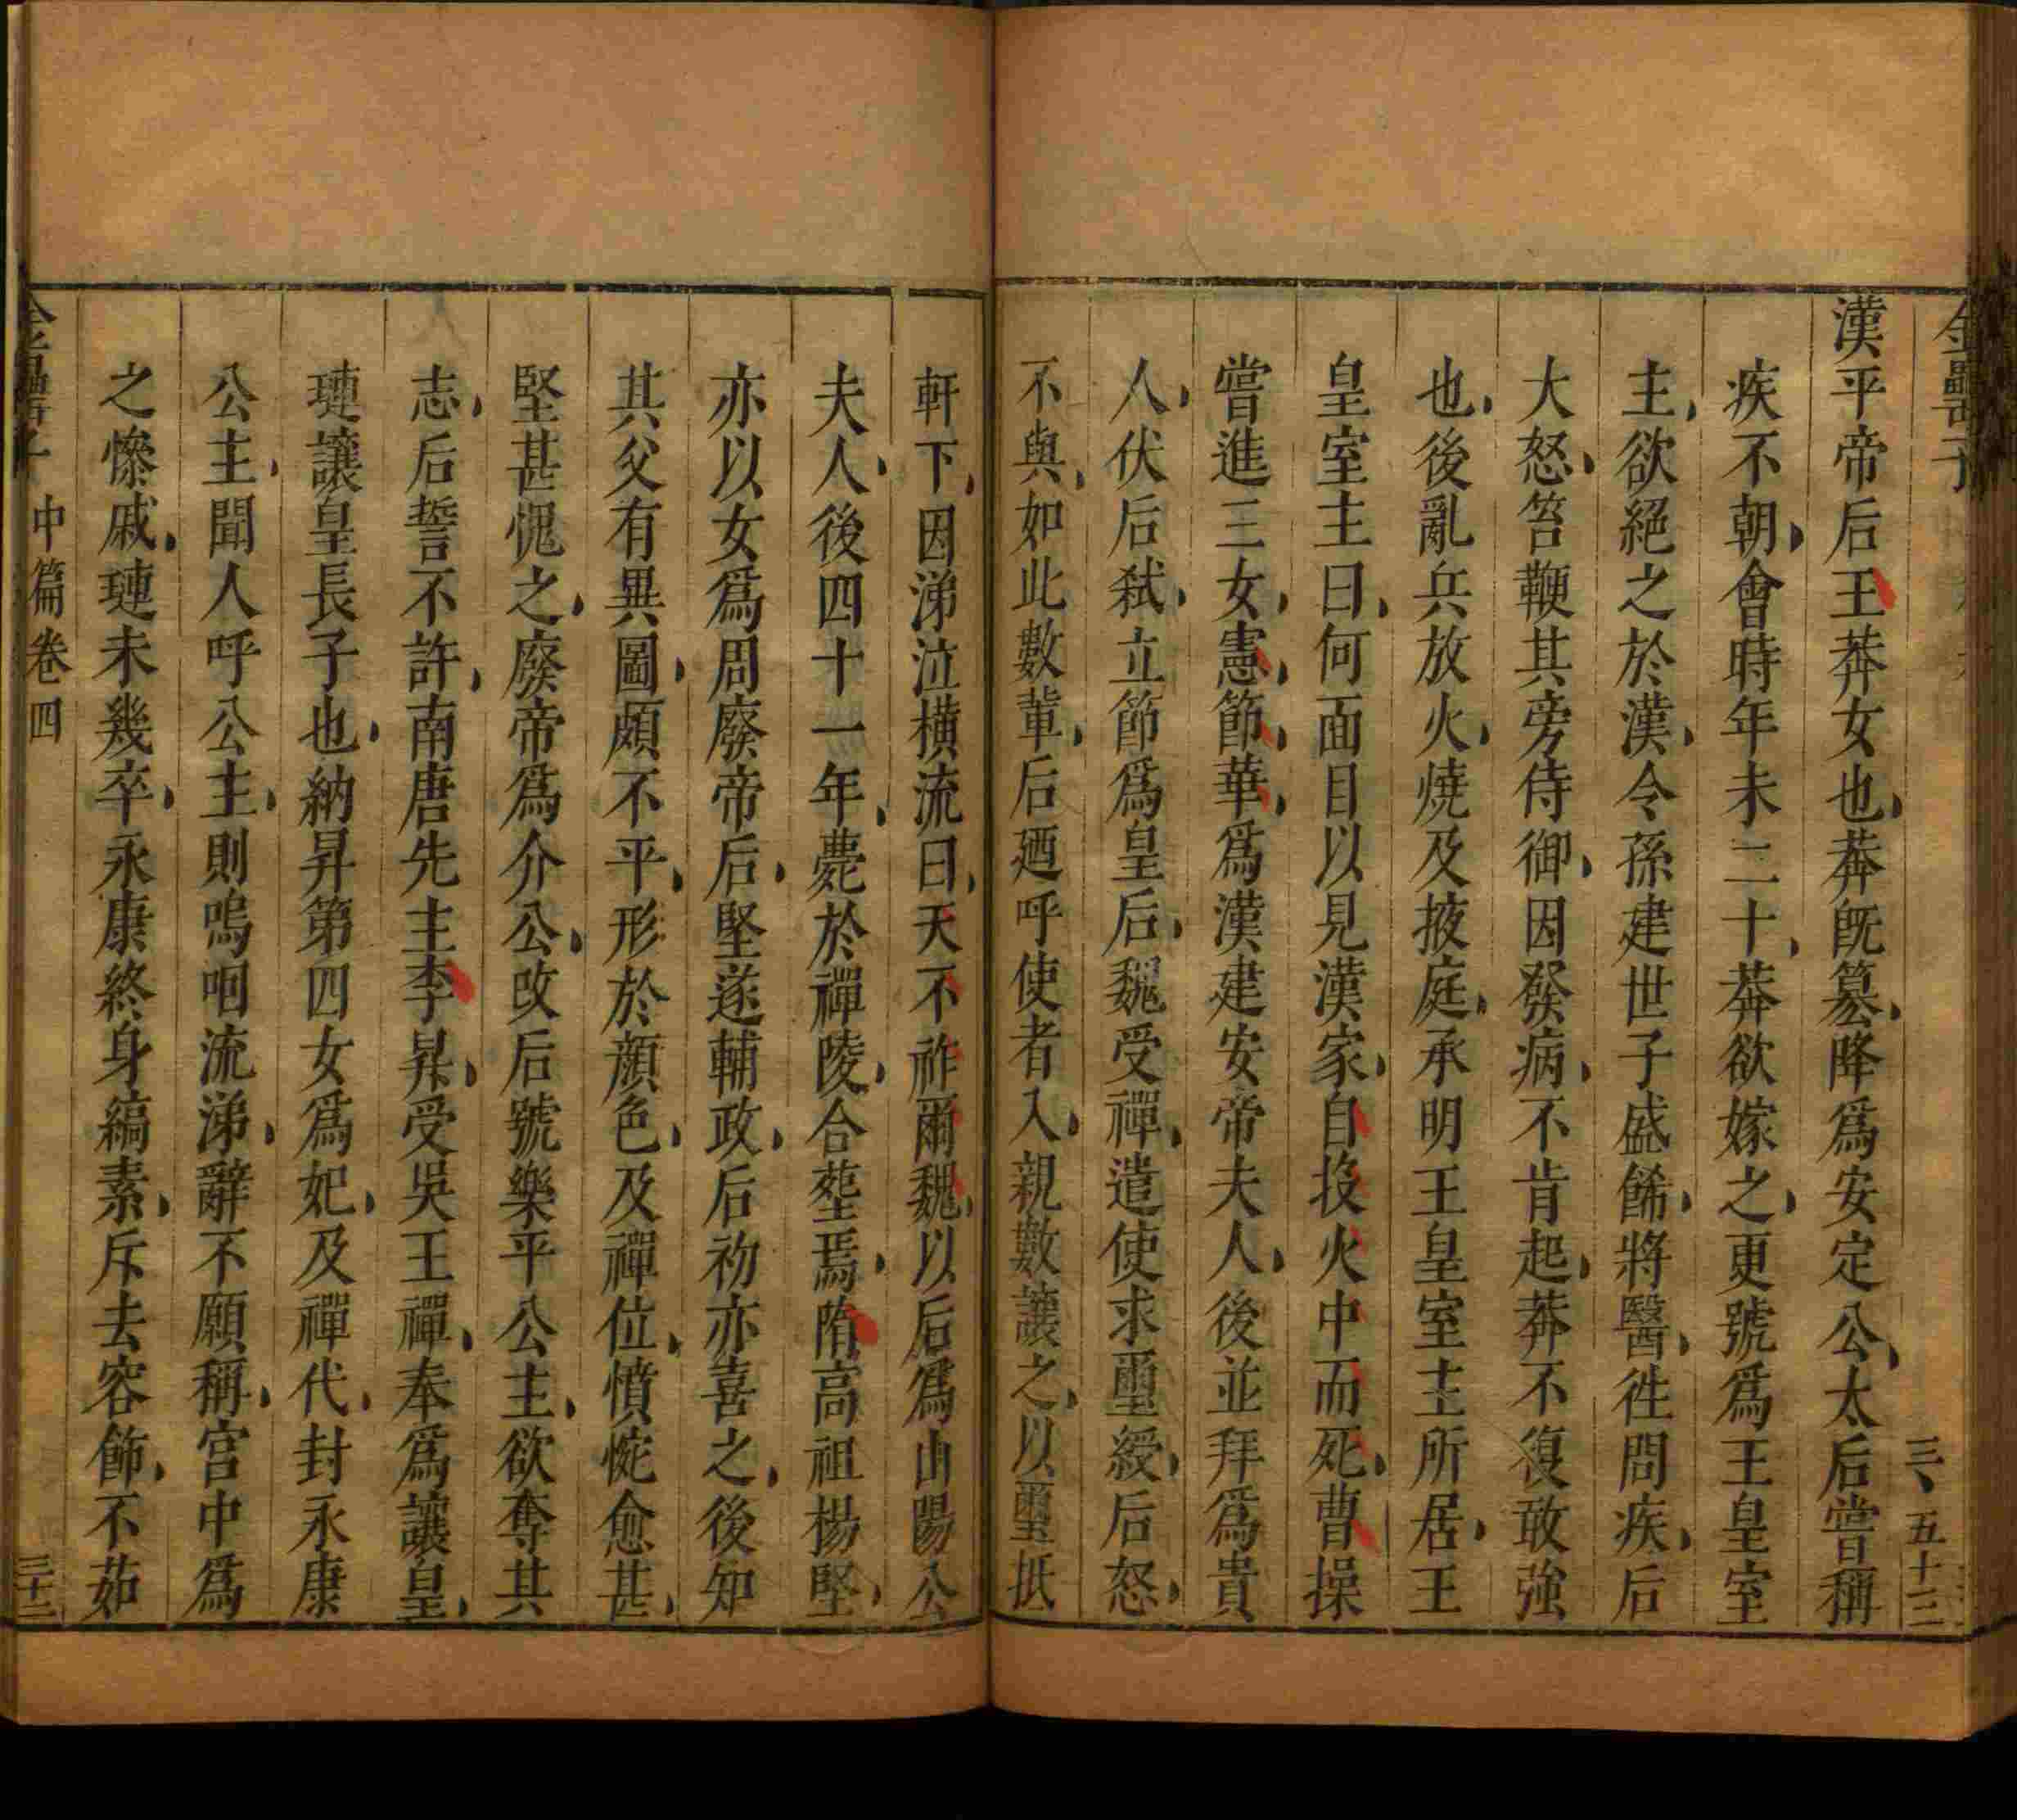 金罍子
三、五十三
漢平帝后王莽女也莽旣篡降爲安定公太后嘗稱
疾不朝會時年未二十莽欲嫁之更號爲王皇室
主欲絕之於漢令孫建世子盛餙將醫徃問疾后
大怒笞鞭其旁侍御因發病不肯起莽不復敢強
也後亂兵放火燒及掖庭承明王皇室主所居王
皇室主曰何面目以見漢家自投火中而死曹操
嘗進三女憲節華爲漢建安帝夫人後並拜爲貴
人伏后弒立節爲皇后魏受禪遣使求璽綬后怒
不與如此數輩后廼呼使者入親數讓之以璽抵
軒下因涕泣橫流曰天不祚爾魏以后爲山陽公
夫人後四十一年薨於禪陵合塟焉隋高祖楊堅
亦以女爲周廢帝后堅遂輔政后初亦喜之後知
其父有異圖頗不平形於顏色及禪位憤惋愈甚
堅甚愧之廢帝爲介公改后號樂平公主欲奪其
志后誓不許南唐先主李昇受吳王禪奉爲讓皇
璉讓皇長子也納昇第四女爲妃及禪代封永康
公主聞人呼公主則嗚咽流涕辭不願稱宮中爲
之慘戚璉未幾卒永康終身縞素斥去容飾不茹
金罍子 中篇卷四 三十二